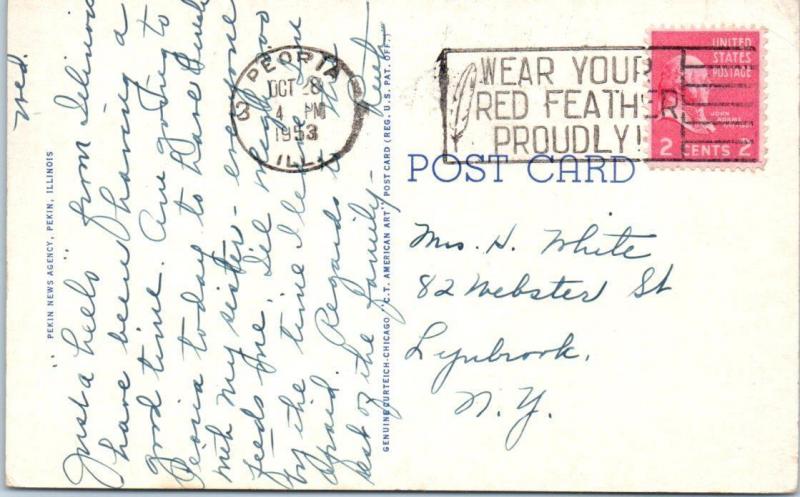 Wed.
"Just a hello" from Illinois
have been having a
good time. Are going to
Peoria today to have lunch
with my sister - everyone
feeds me. I'll weigh 200
by the time I leave I'm
afraid. Regards to the
rest of the family -
Ruth
PEKIN NEWS AGENCY, PEKIN, ILLINOIS
GENUINE CURTEICH-CHICAGO "C.T. AMERICAN ART" POST CARD (REG. U.S. PAT. OFF.)
PEORIA
OCT 28
4 PM
1953
ILL.
3
WEAR YOUR
RED FEATHER
PROUDLY!
UNITED
STATES
POSTAGE
JOHN ADAMS
2 CENTS 2
POST CARD
Mrs. H. White
82 Webster St
Lynbrook,
N.Y.